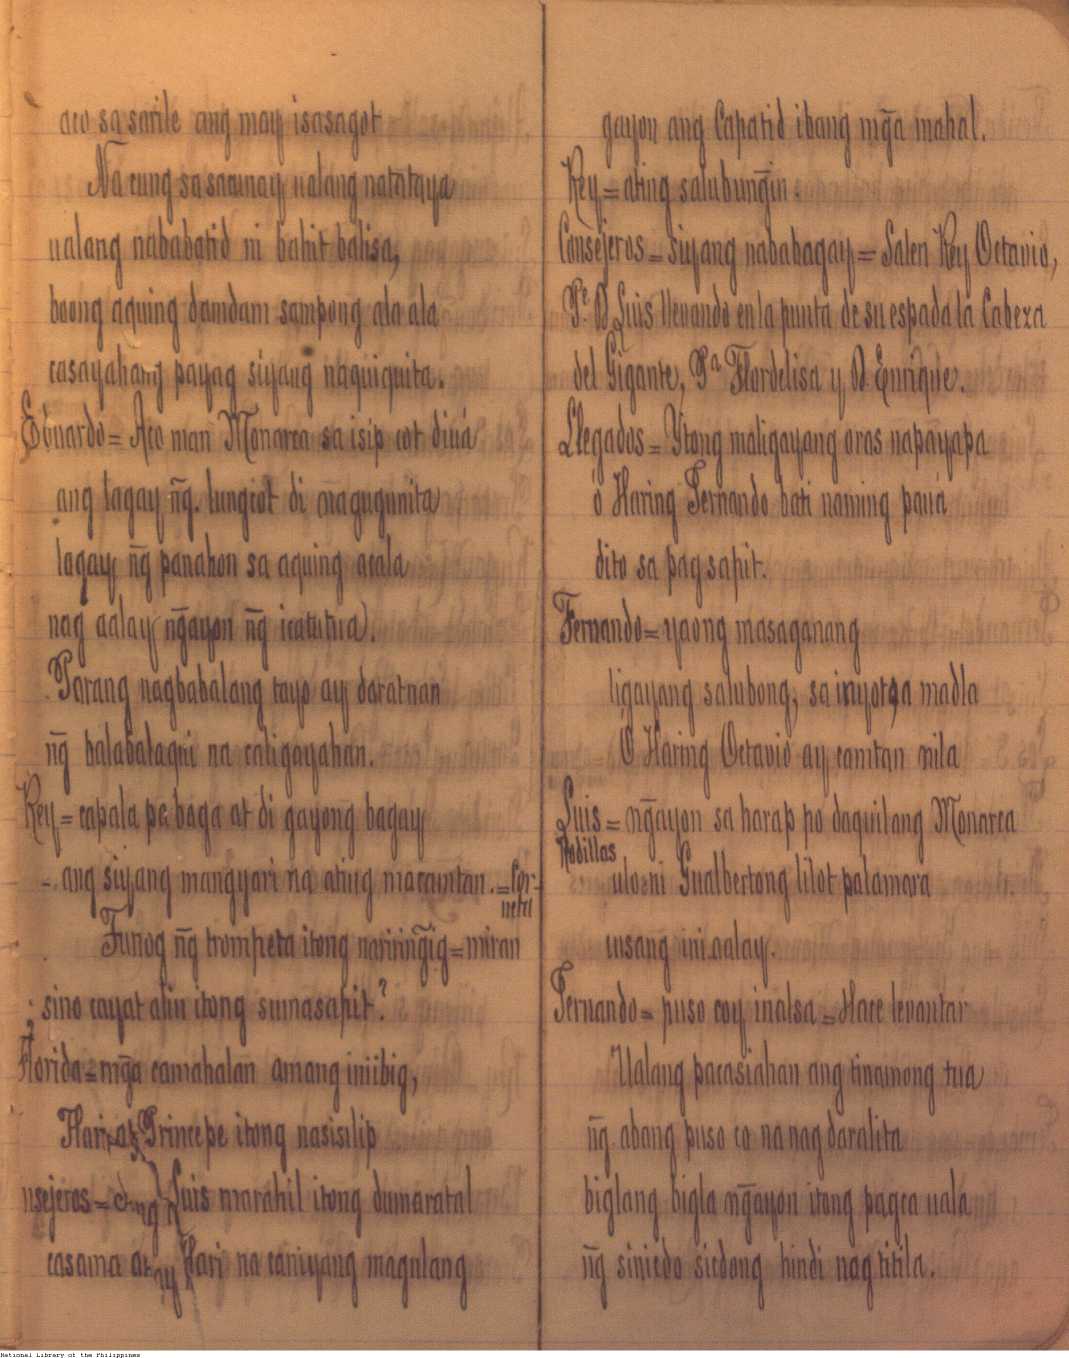 aco sa sarile ang may isasagot
Na cung sa sacunay ualang natataya
ualang nababatid ni bahit balisa,
boong aquing damdam sampong ala ala
casayahang payag siyang naquiquita.
Eduardo = Aco man Monarca sa isip cot diuá
ang lagay ñg. lungcot di magugunita
lagay ñg panahon sa aquing acala
nag aalay ñgayon ñg icatutua.
Parang nagbabalang tayo ay daratnan
ñg balabalaqui na caligayahan.
Rey = capala pa baga at di gayong bagay
ang siyang mangyari na ating macamtan. = Cor-
neta
Tunog ñg trompeta itong naririn̄gig = miran
¿sino cayat alin itong sumasapit?
Florida = mḡa camahalan amang iniibig,
Hari at Princepe itong nasisilip
nsejeros = ang Luis marahil itong dumaratal
casama at ay Hari na caniyang magulang
gayon ang Capatid ibang mḡa mahal.
Rey = ating salubun̄gin.
Consejeros = siyang nababagay = Salen Rey Octavio,
Pe. D Luis llevando en la punta de su espada la Cabeza
del Gigante, Pa Flordelisa y D Enrique.
Llegados = Ytong maligayang oras napayapa
ó Haring Fernando bati naming pauá
dito sa pag sapit.
Fernando = yaong masaganang
ligayang salubong, sa inyot sa madla
O Haring Octavio ay camtan nila
Luis = n̄gayon sa harap po daquilang Monarca
Rodillas
ulo ni Gualbertong lilot palamara
cusang ini aalay.
Fernando = puso coy inalsa = Hace levantar
Ualang pacasiahan ang tinamong tua
n̄g abang puso co na nag daralita
biglang bigla n̄gayon itong pagca uala
n̄g sinicdo sicdong hindi nag titila.
National Library of the Philippines